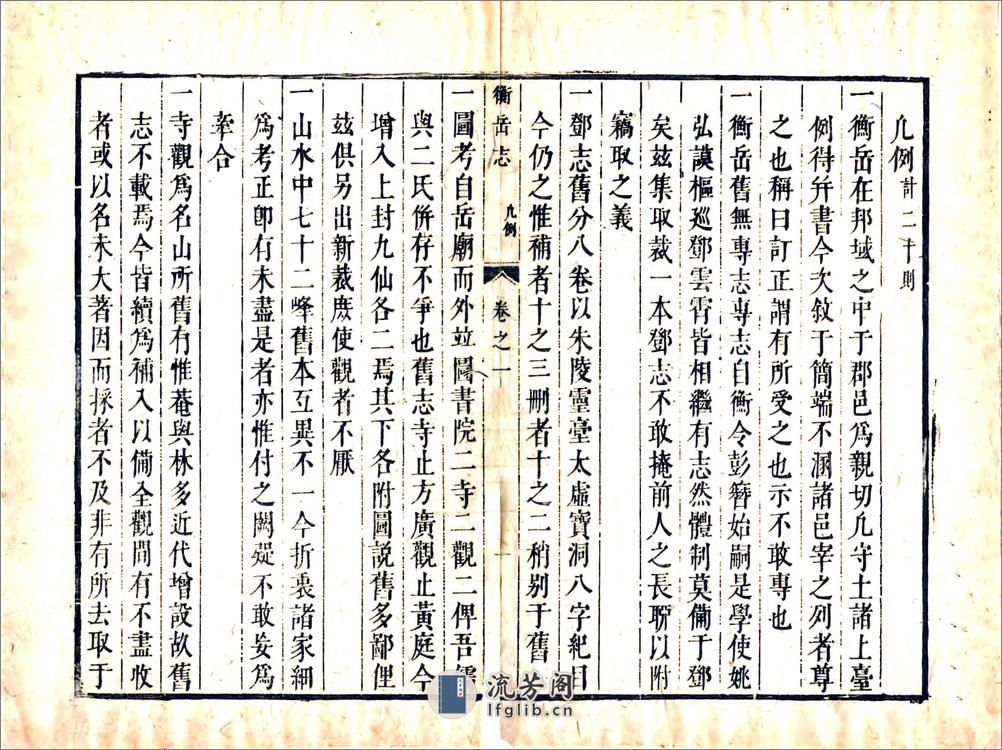 凡例計二十則
一衡岳在邦域之中于郡邑爲親切凡守土諸上臺
例得弁書今次敘于簡端不溷諸邑宰之列者尊
之也稱曰訂正謂有所受之也示不敢專也
一衡岳舊無專志專志自衡令彭簪始嗣是學使姚
弘謨樞巡鄧雲霄皆相繼有志然體制莫備于鄧
矣玆集取裁一本鄧志不敢掩前人之長聊以附
竊取之義
一鄧志舊分八卷以朱陵靈臺太虛寶洞八字紀目
今仍之惟補者十之三刪者十之二稍别于舊
衡岳志 凡例 卷之一 一
一圖考自岳廟而外竝圖書院二寺二觀二俾吾儒
與二氏併存不爭也舊志寺止方廣觀止黃庭今
增入上封九仙各二焉其下各附圖説舊多鄙俚
玆俱另出新裁庻使觀者不厭
一山水中七十二峰舊本互異不一今折衷諸家細
爲考正卽有未盡是者亦惟付之闕疑不敢妄爲
牽合
一寺觀爲名山所舊有惟菴與林多近代增設故舊
志不載焉今皆續爲補入以備全觀間有不盡收
者或以名未大著因而採者不及非有所去取于
流芳阁
lfglib.cn